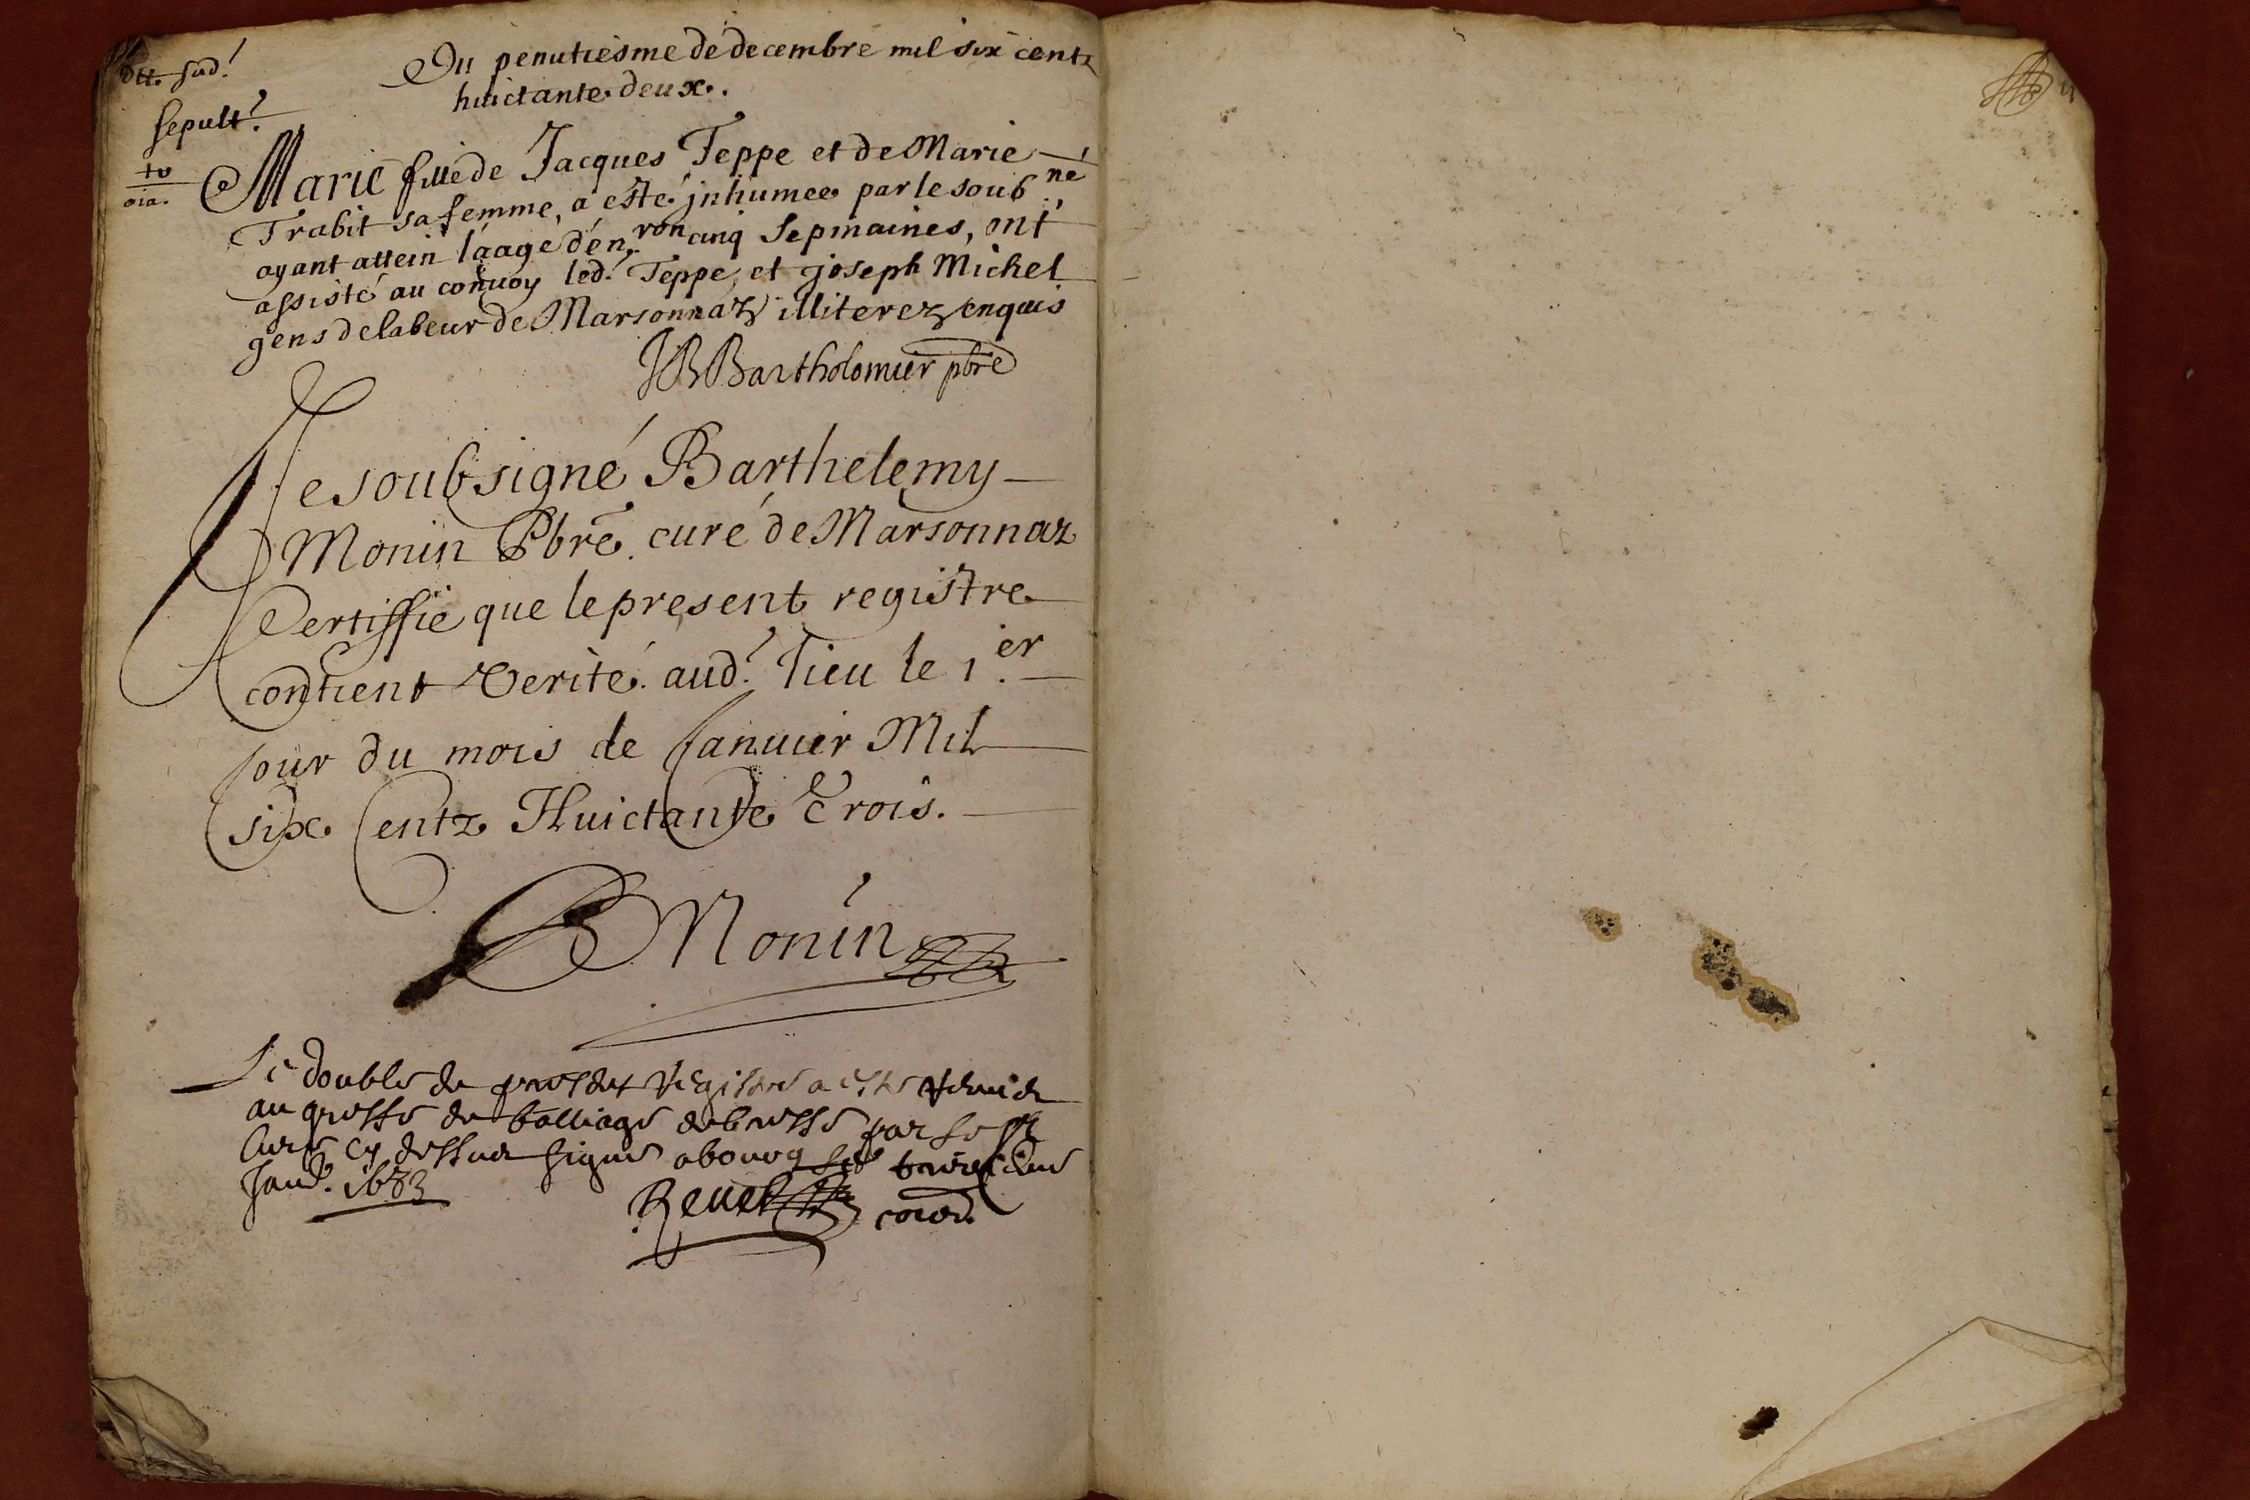 sud.t
Sepult.e
Du penutiesme de decembre mil six centz
huictante deux.
Marie fille de Jacques Teppe et de Marie
Trabit sa femme, a esté jnhumee par le soub.né
ayant attein l'aage d'en.ron cinq sepmaines, ont
assisté au convoy led.t Teppe, et joseph Michel
gens de labeur de Marsonnaz illiterez enquis
JB Bartholomier pbre
Je soubsigné Barthelemy
Monin Pbre. curé de Marsonnaz
Certiffie que le present registre
contient Verité. aud.t lieu le 1.er
jour du mois de Januier Mil
six Centz Huictante Trois.
B Monin
Le double du present Registre a esté remis
au greffe du balliage de bresse par le Sr
Curé cy dessus signé a bourg le
Janv. 1683
Reuel